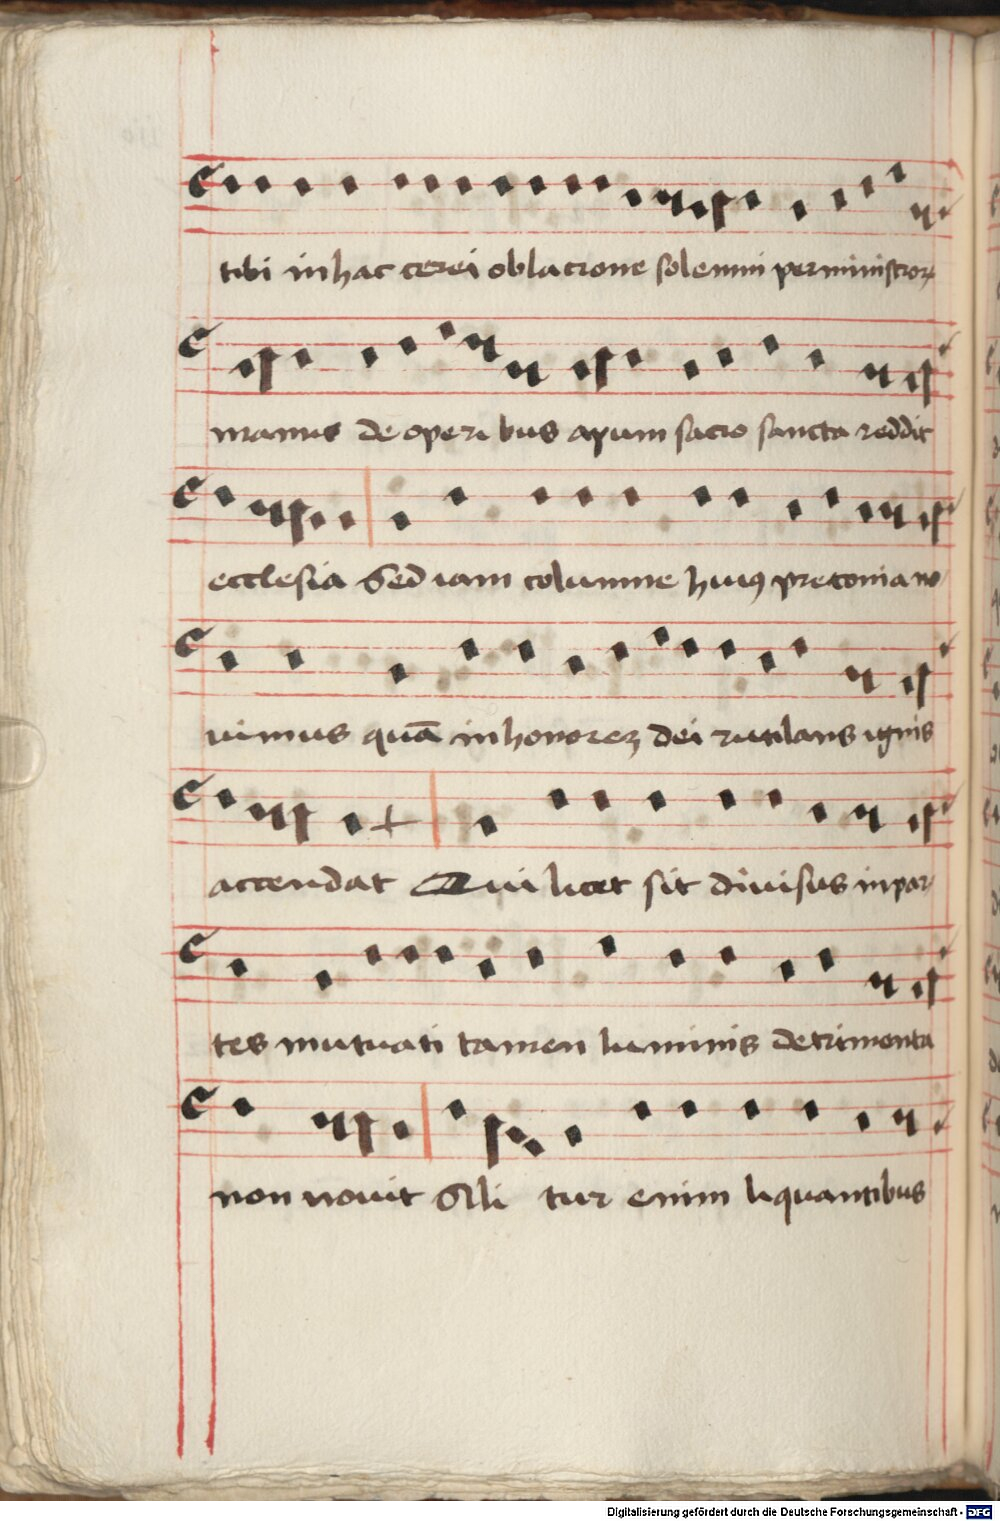 tibi in hac cerei oblacione solemni per ministror
manus de operibus apum sacro sancta reddit
ecclesia Sed iam columne huiꝯ preconia no
uimus quā in honorez dei rutilans ignis
accendat Qui licet sit diuisus in par
tes mutuati tamen luminis detrimenta
non nouit Alitur enim liquantibus
Digitalisierung gefördert durch die Deutsche Forschungsgemeinschaft - DFG